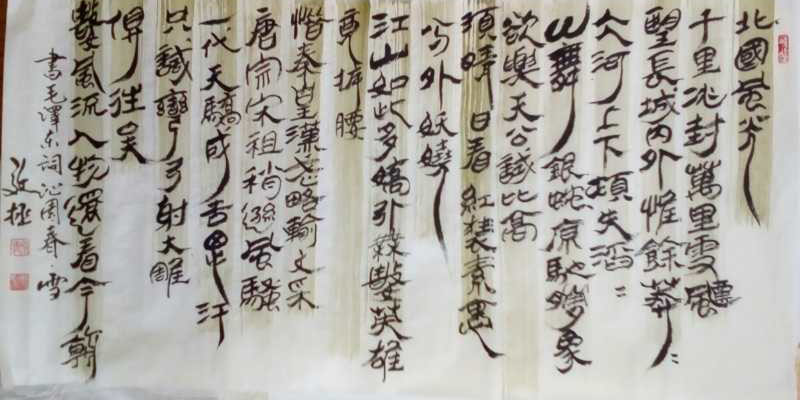 北國風光
千里冰封萬里雪飄
望長城內外惟餘莽〻
大河上下頓失滔〻
山舞銀蛇原馳蠟象
欲與天公試比高
須晴日看紅裝素裹
分外妖嬈
江山如此多嬌引無數英雄
竞折腰
惜秦皇漢武略輸文采
唐宗宋祖稍遜風騷
一代天驕成吉思汗
只識彎弓射大雕
俱往矣
數風流人物還看今朝
書毛澤东詞沁園春·雪